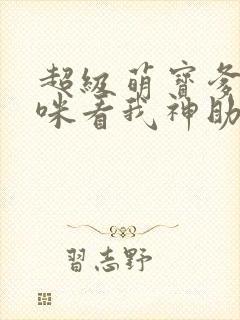 超級萌寶爹
咪看我神助
習志野